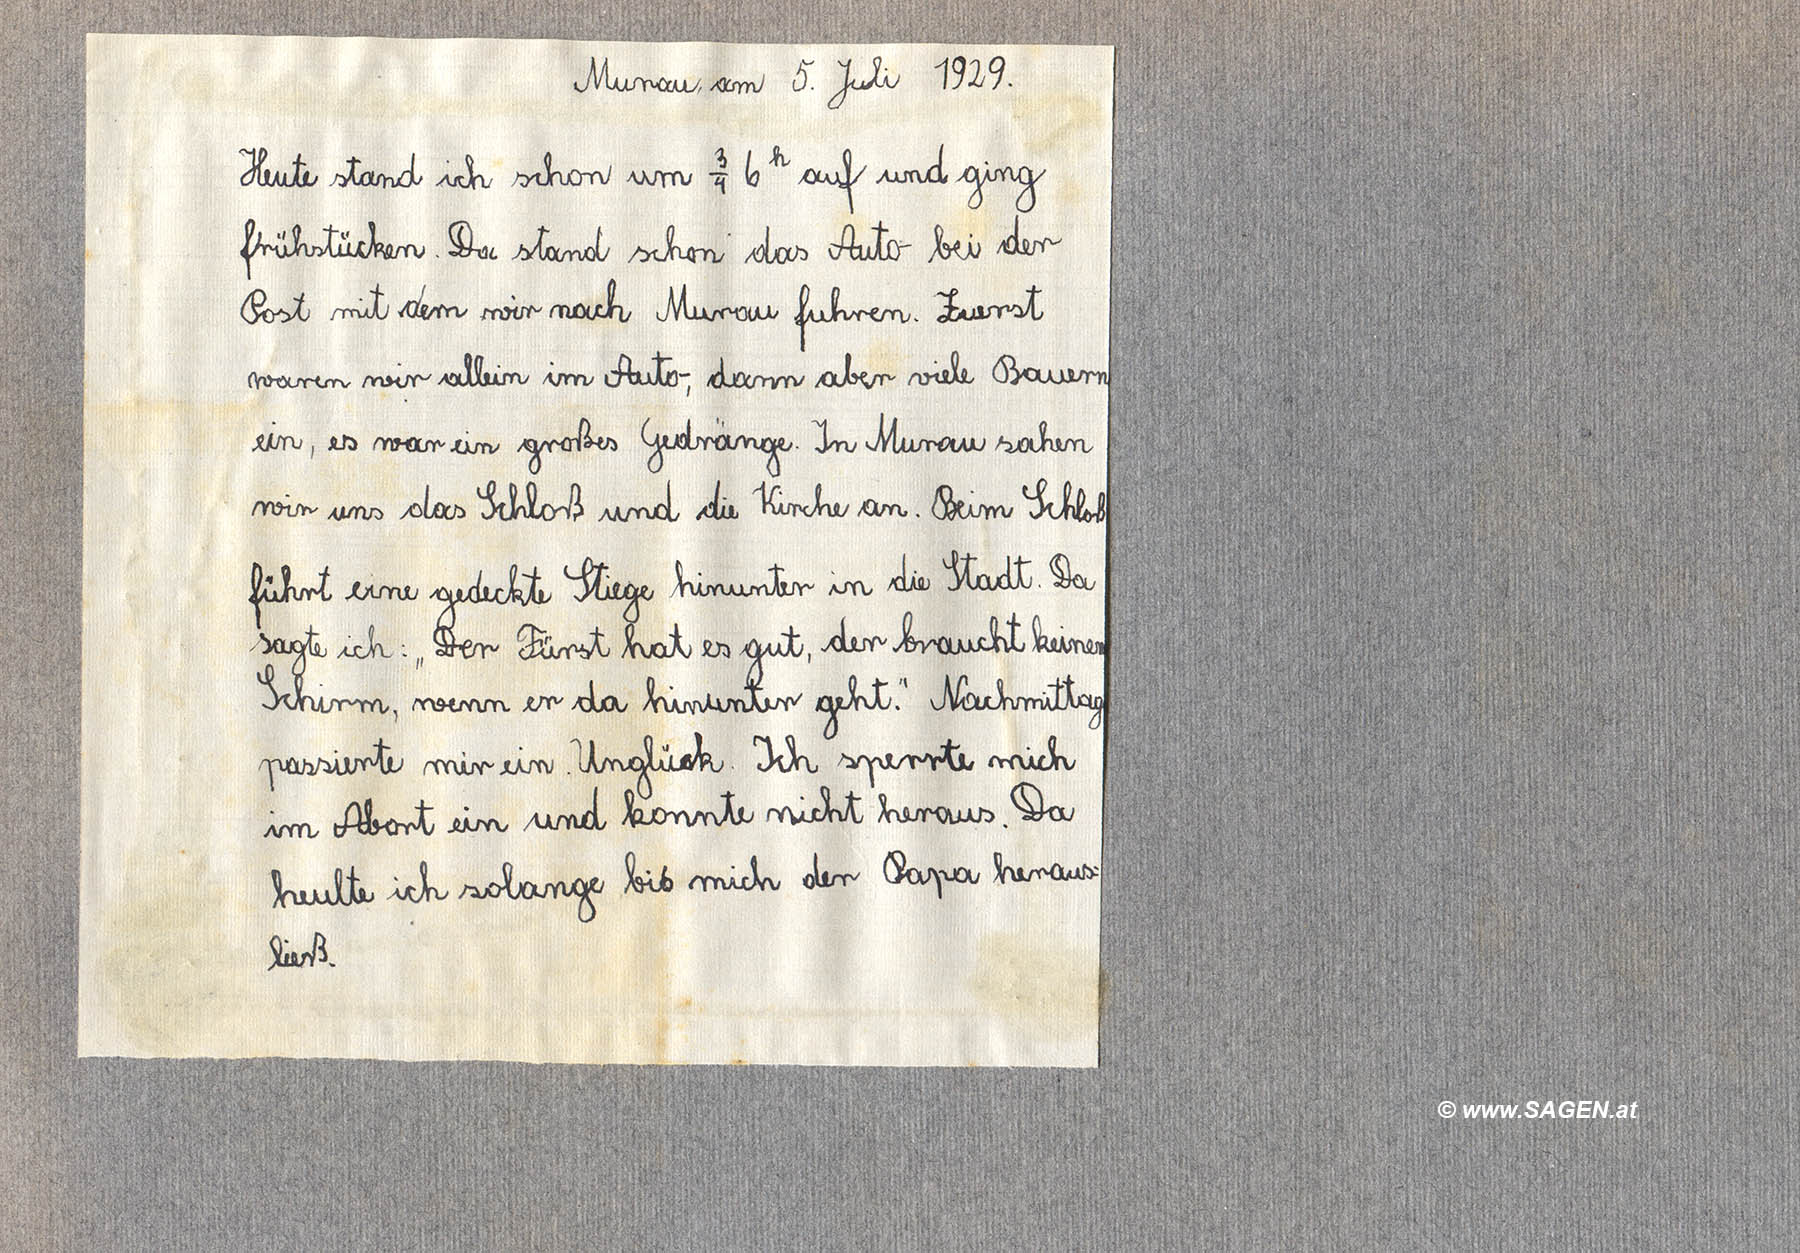 Murau, am 5. Juli 1929.
Heute stand ich schon um ¾ 6ʰ auf und ging
frühstücken. Da stand schon das Auto bei der
Post mit dem wir nach Murau fuhren. Zuerst
waren wir allein im Auto, dann aber viele Bauern
ein, es war ein großes Gedränge. In Murau sahen
wir uns das Schloß und die Kirche an. Beim Schloß
führt eine gedeckte Stiege hinunter in die Stadt. Da
sagte ich: „Der Fürst hat es gut, der braucht keinen
Schirm, wenn er da hinunter geht." Nachmittag
passierte mir ein Unglück. Ich sperrte mich
im Abort ein und konnte nicht heraus. Da
heulte ich solange bis mich der Papa heraus=
ließ.
© www.SAGEN.at